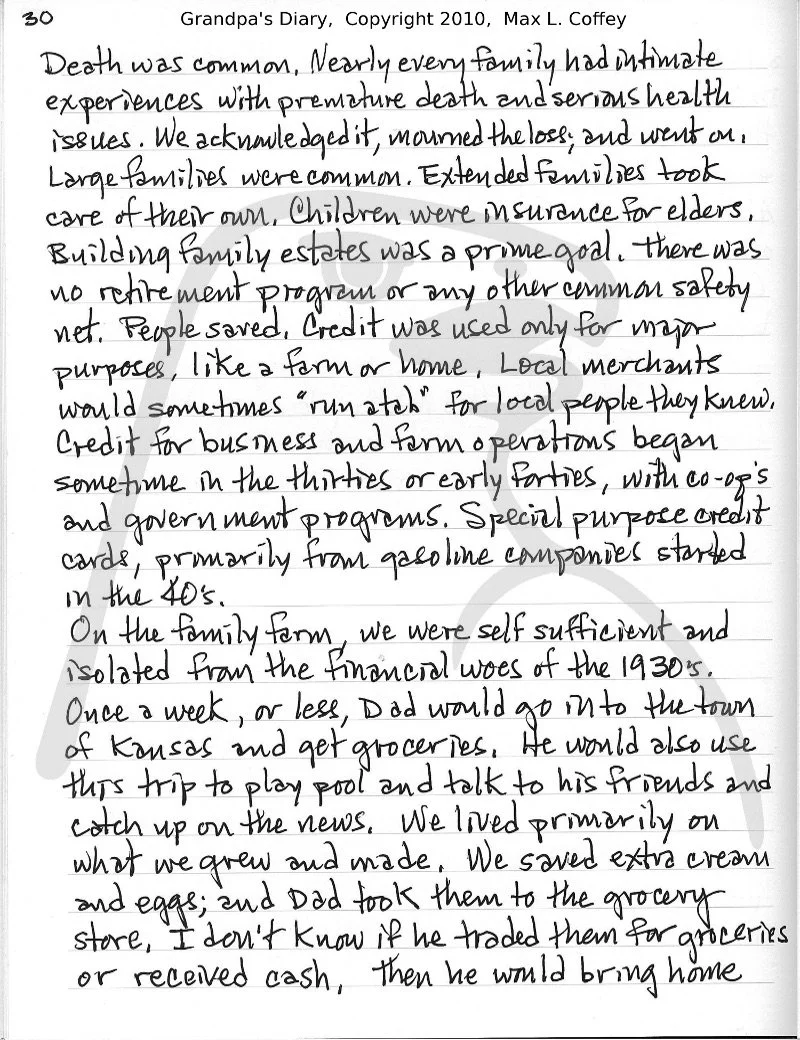 30
Grandpa's Diary, Copyright 2010, Max L. Coffey
Death was common. Nearly every family had intimate
experiences with premature death and serious health
issues. We acknowledged it, mourned the loss; and went on.
Large families were common. Extended families took
care of their own. Children were insurance for elders.
Building family estates was a prime goal. There was
no retirement program or any other common safety
net. People saved. Credit was used only for major
purposes, like a farm or home. Local merchants
would sometimes "run a tab" for local people they knew.
Credit for business and farm operations began
sometime in the thirties or early forties, with co-op's
and government programs. Special purpose credit
cards, primarily from gasoline companies started
in the 40's.
On the family farm, we were self sufficient and
isolated from the financial woes of the 1930's.
Once a week, or less, Dad would go into the town
of Kansas and get groceries. He would also use
this trip to play pool and talk to his friends and
catch up on the news. We lived primarily on
what we grew and made. We saved extra cream
and eggs; and Dad took them to the grocery
store. I don't know if he traded them for groceries
or received cash, then he would bring home